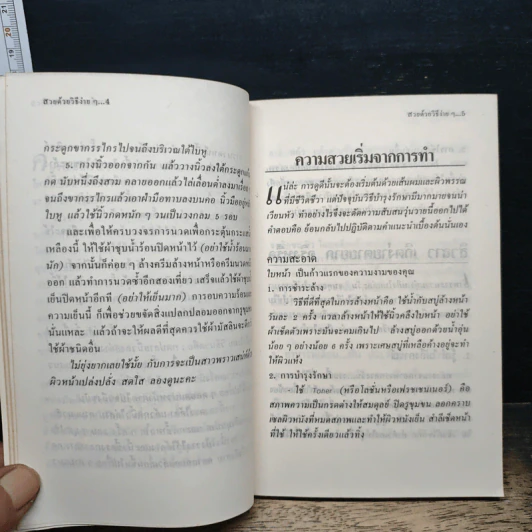 สวยด้วยวิธีง่าย ๆ...4
กระดูกขากรรไกรไปจนถึงบริเวณใต้ใบหู
๖. กางนิ้วออกจากกัน แล้ววางนิ้วลงใต้กระดูก
กด นับหนึ่งถึงสาม คลายออกแล้วไล่เลื่อนต่ำลงมา
จนถึงขากรรไกรแล้วเอาฝ่ามือทาบลงบนคอ นิ้วมืออยู่
ใบหู แล้วใช้นิ้วกดหนัก ๆ วนเป็นวงกลม 5 รอบ
และเพื่อให้ครบวงจรการนวดเพื่อกระตุ้นกระ
เหลืองนี้ ให้ใช้ผ้าชุบน้ำร้อนปิดหน้าไว้ (อย่าใช้น้ำร้อน
นัก) จากนั้นก็ค่อย ๆ ล้างครีมล้างหน้าหรือครีมนวดหน้า
ออก แล้วทำการนวดซ้ำอีกสองเที่ยว เสร็จแล้วใช้ผ้าชุบ
เย็นปิดหน้าอีกที (อย่าให้เย็นมาก) การอบความร้อน
ความเย็นนี้ ก็เพื่อช่วยขจัดสิ่งแปลกปลอมออกจากรูขุม
นั่นแหละ แล้วถ้าจะให้ผลดีที่สุดควรใช้ผ้ามัสลินจะดีกว่า
ใช้ผ้าชนิดอื่น
ไม่ยุ่งยากเลยใช่มั้ย กับการจะเป็นสาวพราวเสน่ห์ที่
ผิวหน้าเปล่งปลั่ง สดใส ลองดูนะคะ
สวยด้วยวิธีง่าย ๆ...5
ความสวยเริ่มจากการทำ
แน่ล่ะ การดูดีนั้นจะต้องเริ่มต้นด้วยเส้นผมและผิวพรรณ
ที่มีชีวิตชีวา แต่ปัจจุบันวิธีบำรุงรักษามีมากมายจนน่า
เวียนหัว ทำอย่างไรจึงจะตัดความสับสนวุ่นวายนี้ออกไปได้
คำตอบคือ ย้อนกลับไปปฏิบัติตามคำแนะนำเบื้องต้นนั่นเอง
ความสะอาด
ใบหน้า เป็นก้าวแรกของความงามของคุณ
1. การชำระล้าง
- วิธีที่ดีที่สุดในการล้างหน้าคือ ใช้น้ำกับสบู่ล้างหน้า
วันละ 2 ครั้ง เวลาล้างหน้าให้ใช้นิ้วคลึงไปบนหน้า อย่าใช้
ผ้าเช็ดตัวเพราะมันจะคมเกินไป ล้างสบู่ออกด้วยน้ำอุ่น
น้อย ๆ อย่างน้อย 6 ครั้ง เพราะเศษสบู่ที่เหลือค้างอยู่จะทำ
ให้ผิวแห้ง
2. การบำรุงรักษา
- ใช้ Toner (หรือโลชั่นหรือเฟรชเชนเนอร์) คือ
สภาพความเป็นกรดด่างให้สมดุลย์ ปิดรูขุมขน ลอกคราบ
เซลผิวหนังที่หมดสภาพและทำให้ผิวหนังเย็น สำลีเช็ดหน้า
ที่ใช้ ให้ใช้ครั้งเดียวแล้วทิ้ง